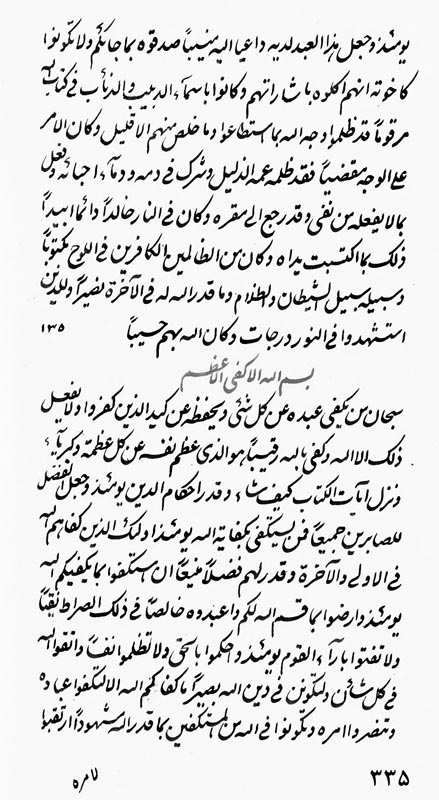 يومئذ وجعل هذا العبد لديه داعيا اليه منيباً صدقوه بما جائكم ولا تكونوا
كاخوته انهم اكلوه باشاراتهم وكانوا باسمآء الذئب والذئاب في كتاب الله
مرقوماً قد ظلموا وجه الله بما استطاعوا وما خلص منهم الا قليل وكان الامر
على الوجه مقضياً فقد ظلمه عمه الذليل وشرك في دمه ودمآء احبائه وفعل
بالا يفعله من نفى وقد رجع الى مقره وكان في النار خالداً دائما ابداً
ذلك بما اكتسبت يداه وكان من الظالمين الكافرين في اللوح مكتوباً
وسبيله سبيل الشيطان والظلام وما قدر الله له في الآخرة نصيراً وللذين
استشهدوا في النور درجات وكان الله بهم حسيباً ١٣٥
بسم الله الاكفى الاعظم
سبحان من يكفى عبده عن كل شئى ويحفظه عن كيد الذين كفروا ولا يفعل
ذلك الا الله وكفى بالله رقيباً هو الذى عظم نفسه عن كل عظمة وكبريآء
ونزل آيات الكتاب كيف شآء وقدر احكام الدين يومئذ وجعل الفضل
للصابرين جميعاً فمن يستكفى بكفاية الله يومئذ اولئك الذين كفاهم الله
في الاولى والآخرة وقدر لهم فضلاً منيعاً ان استكفوا بما يكفيكم الله
يومئذ وارضوا بما قسم الله لكم واعبدوه خالصاً في ذلك الصراط نقياً
ولا تفتوا بارآء القوم يومئذ واحكموا بالحق ولا تظلموا نفساً واتقوا الله
في كل شأن ولتكونن في دين الله بصيراً ما كفاكم الله الا لتكفوا عباده
وتنصروا امره وتكونوا في الله من المستكفين بما قدر الله مشهوداً ارتقبوا
لامره
٣٣٥